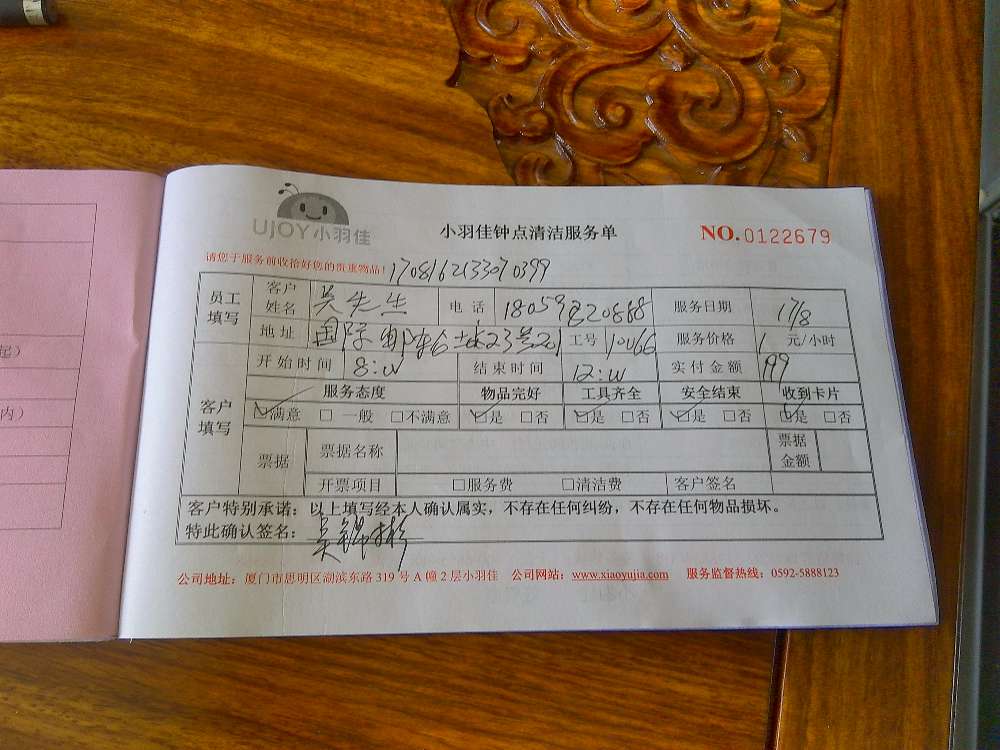 UJOY小羽佳
小羽佳钟点清洁服务单
NO.0122679
请您于服务前收拾好您的贵重物品! 1708162133070399
员工填写 客户姓名 吴先生 电话 服务日期 17/8
地址 国际 23号201 工号 10066 服务价格 元/小时
开始时间 8:00 结束时间 12:00 实付金额 199
客户填写 服务态度 物品完好 工具齐全 安全结束 收到卡片
☑满意 □一般 □不满意 ☑是 □否 ☑是 □否 ☑是 □否 ☑是 □否
票据 票据名称 票据金额
开票项目 □服务费 □清洁费 客户签名
客户特别承诺：以上填写经本人确认属实，不存在任何纠纷，不存在任何物品损坏。
特此确认签名： 吴锦彬
公司地址：厦门市思明区湖滨东路 319 号 A 幢 2 层小羽佳 公司网站：www.xiaoyujia.com 服务监督热线：0592-5888123
起）
内）